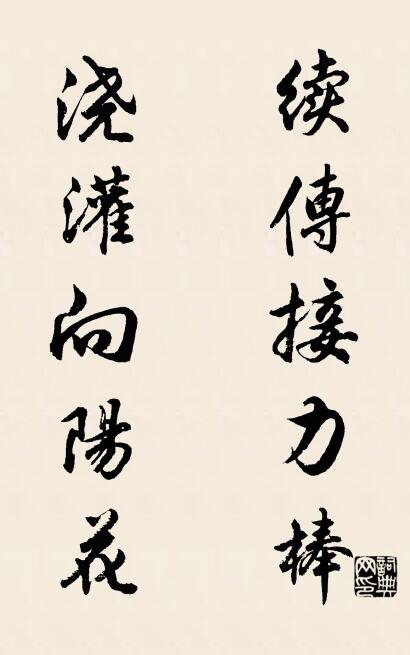 续傳接力棒
浇灌向陽花
詞典网印